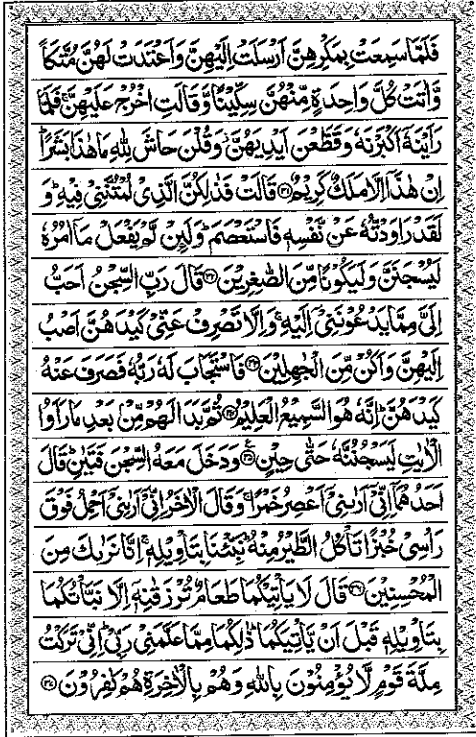 فَلَمَّا سَمِعَتْ بِمَكْرِهِنَّ اَرْسَلَتْ اِلَيْهِنَّ وَاَعْتَدَتْ لَهُنَّ مُتَّكَاً
وَّاٰتَتْ كُلَّ وَاحِدَةٍ مِّنْهُنَّ سِكِّيْنًا وَّقَالَتِ اخْرُجْ عَلَيْهِنَّ ۚ فَلَمَّا
رَاَيْنَهٗٓ اَكْبَرْنَهٗ وَقَطَّعْنَ اَيْدِيَهُنَّ وَقُلْنَ حَاشَ لِلّٰهِ مَا هٰذَا بَشَرًا ؕ
اِنْ هٰذَآ اِلَّا مَلَكٌ كَرِيْمٌ ﴿۳۱﴾ قَالَتْ فَذٰلِكُنَّ الَّذِيْ لُمْتُنَّنِيْ فِيْهِ ؕ وَ
لَقَدْ رَاوَدْتُّهٗ عَنْ نَّفْسِهٖ فَاسْتَعْصَمَ ؕ وَلَئِنْ لَّمْ يَفْعَلْ مَآ اٰمُرُهٗ
لَيُسْجَنَنَّ وَلَيَكُوْنًا مِّنَ الصّٰغِرِيْنَ ﴿۳۲﴾ قَالَ رَبِّ السِّجْنُ اَحَبُّ
اِلَيَّ مِمَّا يَدْعُوْنَنِيْٓ اِلَيْهِ ۚ وَاِلَّا تَصْرِفْ عَنِّيْ كَيْدَهُنَّ اَصْبُ
اِلَيْهِنَّ وَاَكُنْ مِّنَ الْجٰهِلِيْنَ ﴿۳۳﴾ فَاسْتَجَابَ لَهٗ رَبُّهٗ فَصَرَفَ عَنْهُ
كَيْدَهُنَّ ؕ اِنَّهٗ هُوَ السَّمِيْعُ الْعَلِيْمُ ﴿۳۴﴾ ثُمَّ بَدَا لَهُمْ مِّنْۢ بَعْدِ مَا رَاَوُا
الْاٰيٰتِ لَيَسْجُنُنَّهٗ حَتّٰى حِيْنٍ ﴿۳۵﴾ وَدَخَلَ مَعَهُ السِّجْنَ فَتَيٰنِ ؕ قَالَ
اَحَدُهُمَآ اِنِّيْٓ اَرٰىنِيْٓ اَعْصِرُ خَمْرًا ۚ وَقَالَ الْاٰخَرُ اِنِّيْٓ اَرٰىنِيْٓ اَحْمِلُ فَوْقَ
رَاْسِيْ خُبْزًا تَاْكُلُ الطَّيْرُ مِنْهُ ؕ نَبِّئْنَا بِتَاْوِيْلِهٖ ۚ اِنَّا نَرٰىكَ مِنَ
الْمُحْسِنِيْنَ ﴿۳۶﴾ قَالَ لَا يَاْتِيْكُمَا طَعَامٌ تُرْزَقٰنِهٖٓ اِلَّا نَبَّاْتُكُمَا
بِتَاْوِيْلِهٖ قَبْلَ اَنْ يَّاْتِيَكُمَا ؕ ذٰلِكُمَا مِمَّا عَلَّمَنِيْ رَبِّيْ ؕ اِنِّيْ تَرَكْتُ
مِلَّةَ قَوْمٍ لَّا يُؤْمِنُوْنَ بِاللّٰهِ وَهُمْ بِالْاٰخِرَةِ هُمْ كٰفِرُوْنَ ﴿۳۷﴾